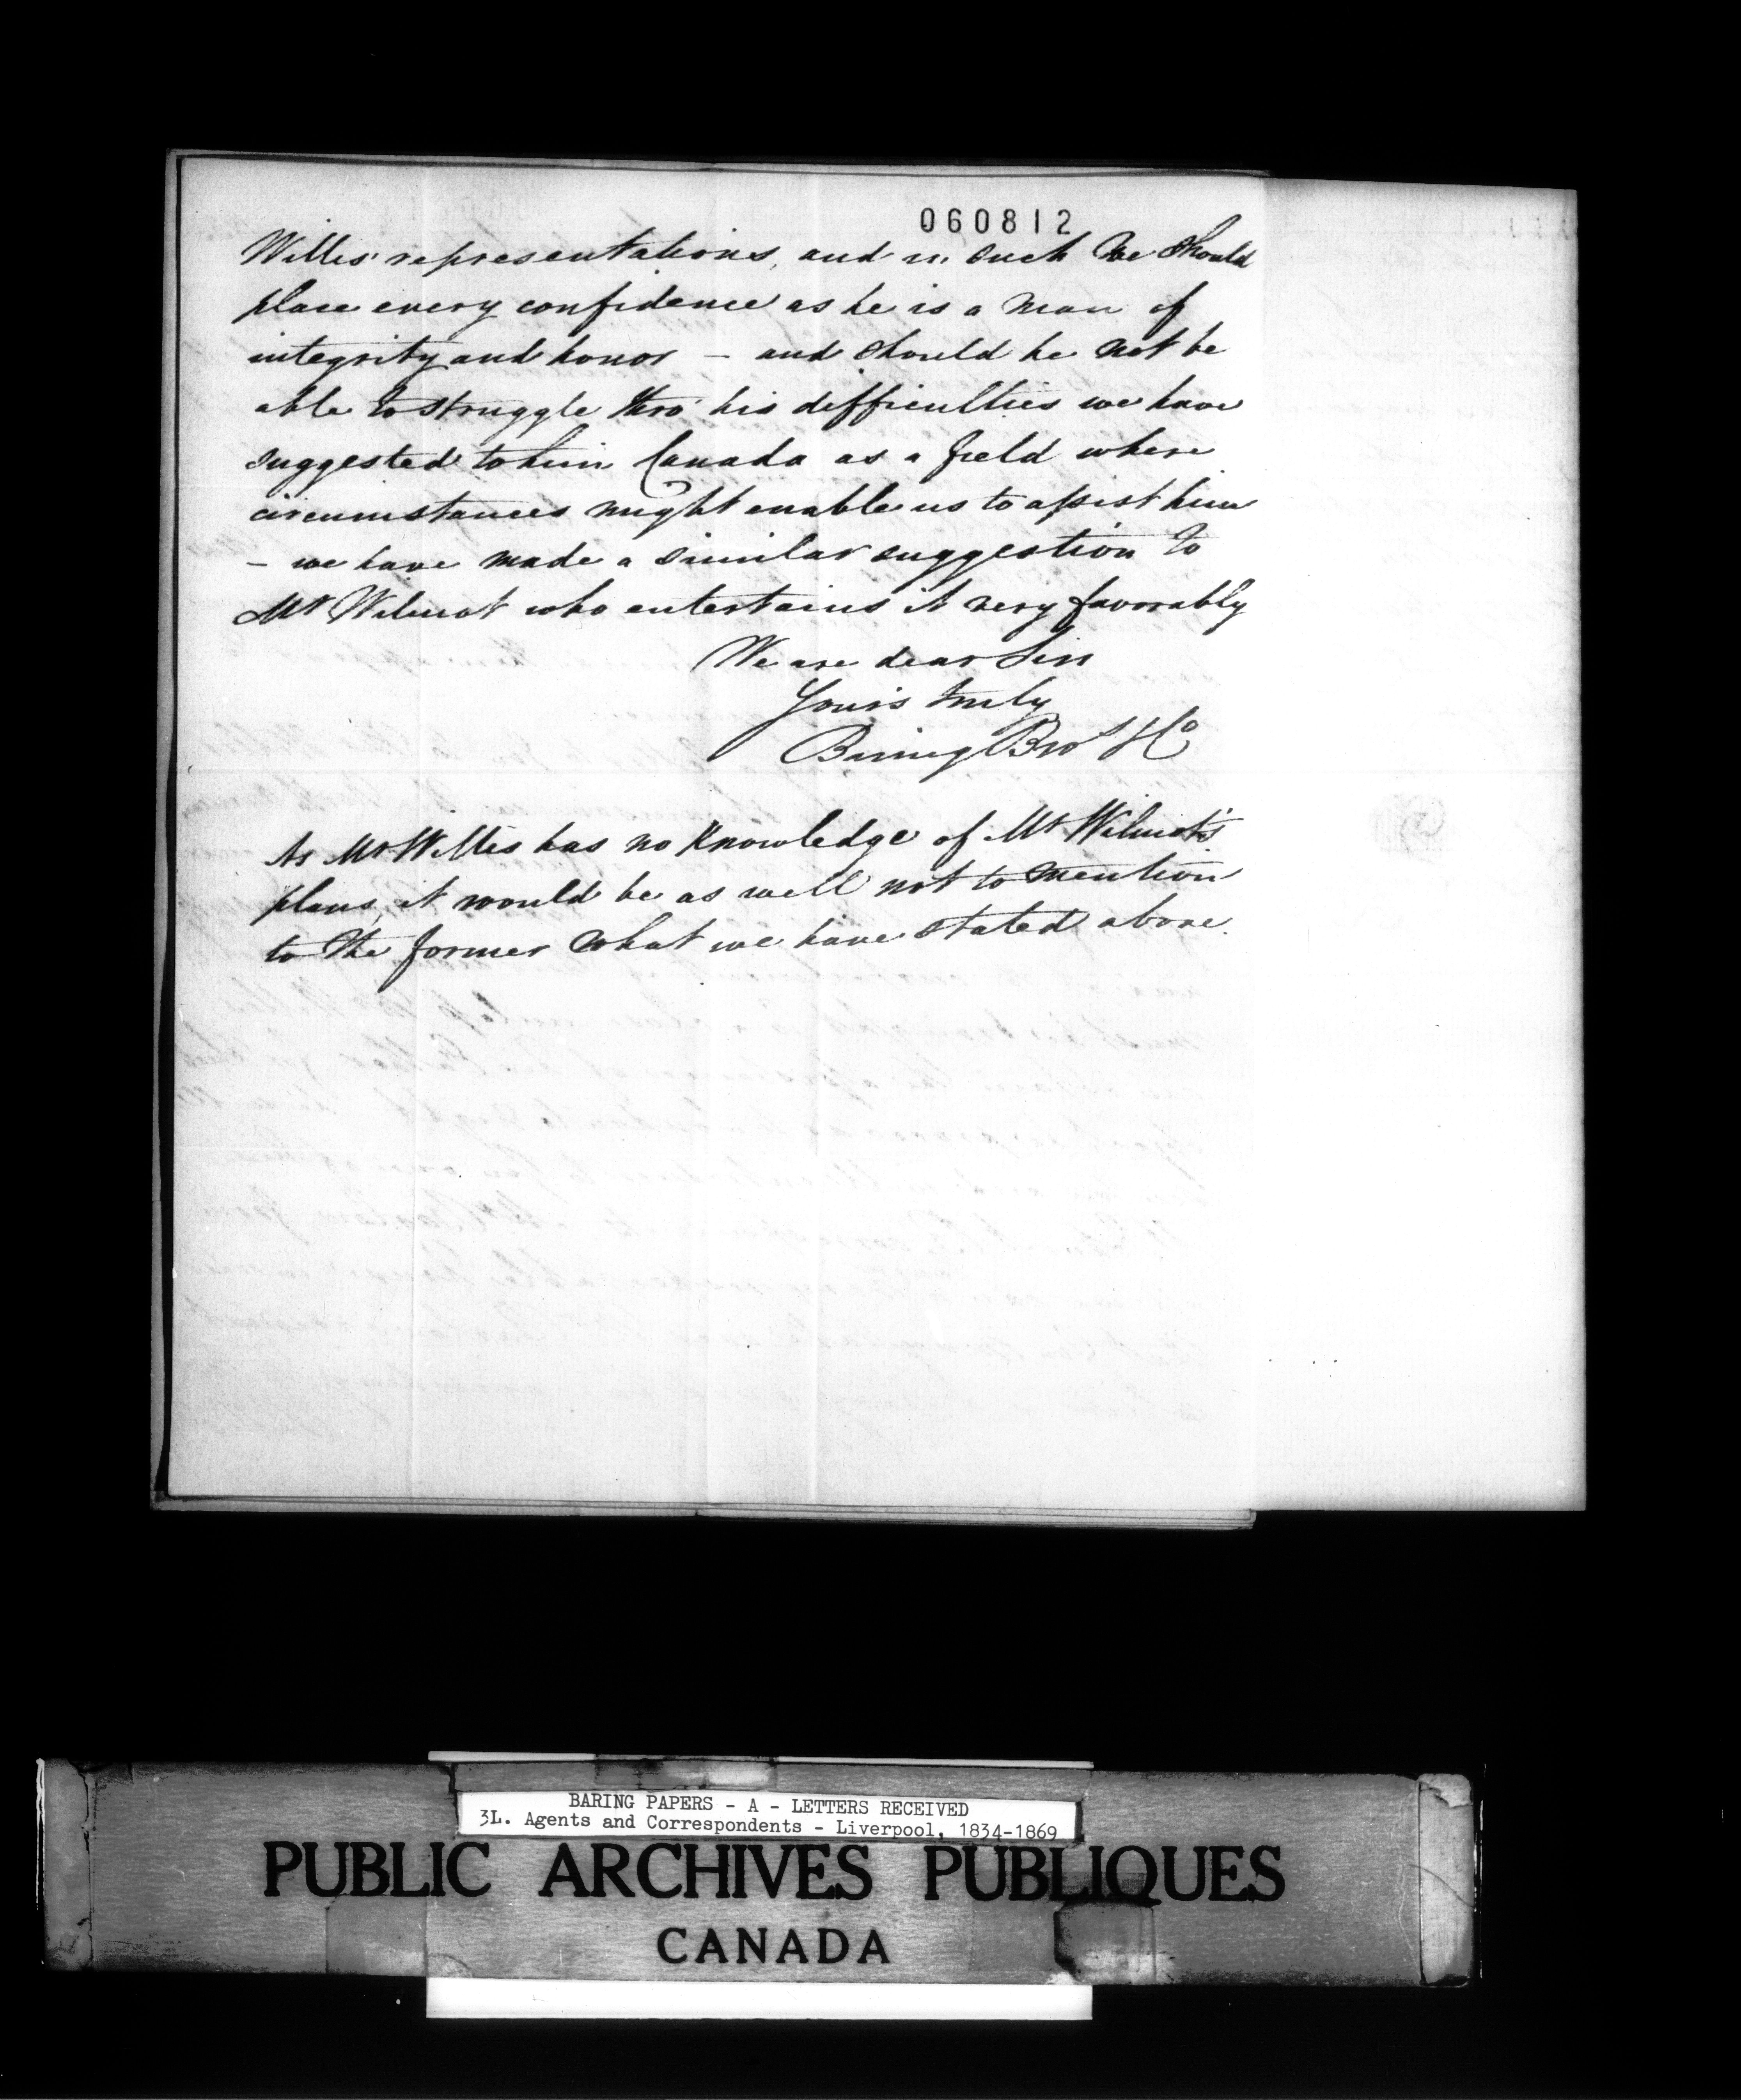 060812
Willis' representations, and in such we should
place every confidence as he is a man of
integrity and honor – and should he not be
able to struggle thro' his difficulties we have
suggested to him Canada as a field where
circumstances might enable us to assist him
– we have made a similar suggestion to
Mr Wilmot who entertains it very favorably
We are dear Sirs
Yours truly
Baring Bros & Co
As Mr Willis has no knowledge of Mr Wilmot's
plans, it would be as well not to mention
to the former what we have stated above.
BARING PAPERS - A - LETTERS RECEIVED
3L. Agents and Correspondents - Liverpool, 1834-1869
PUBLIC ARCHIVES PUBLIQUES
CANADA